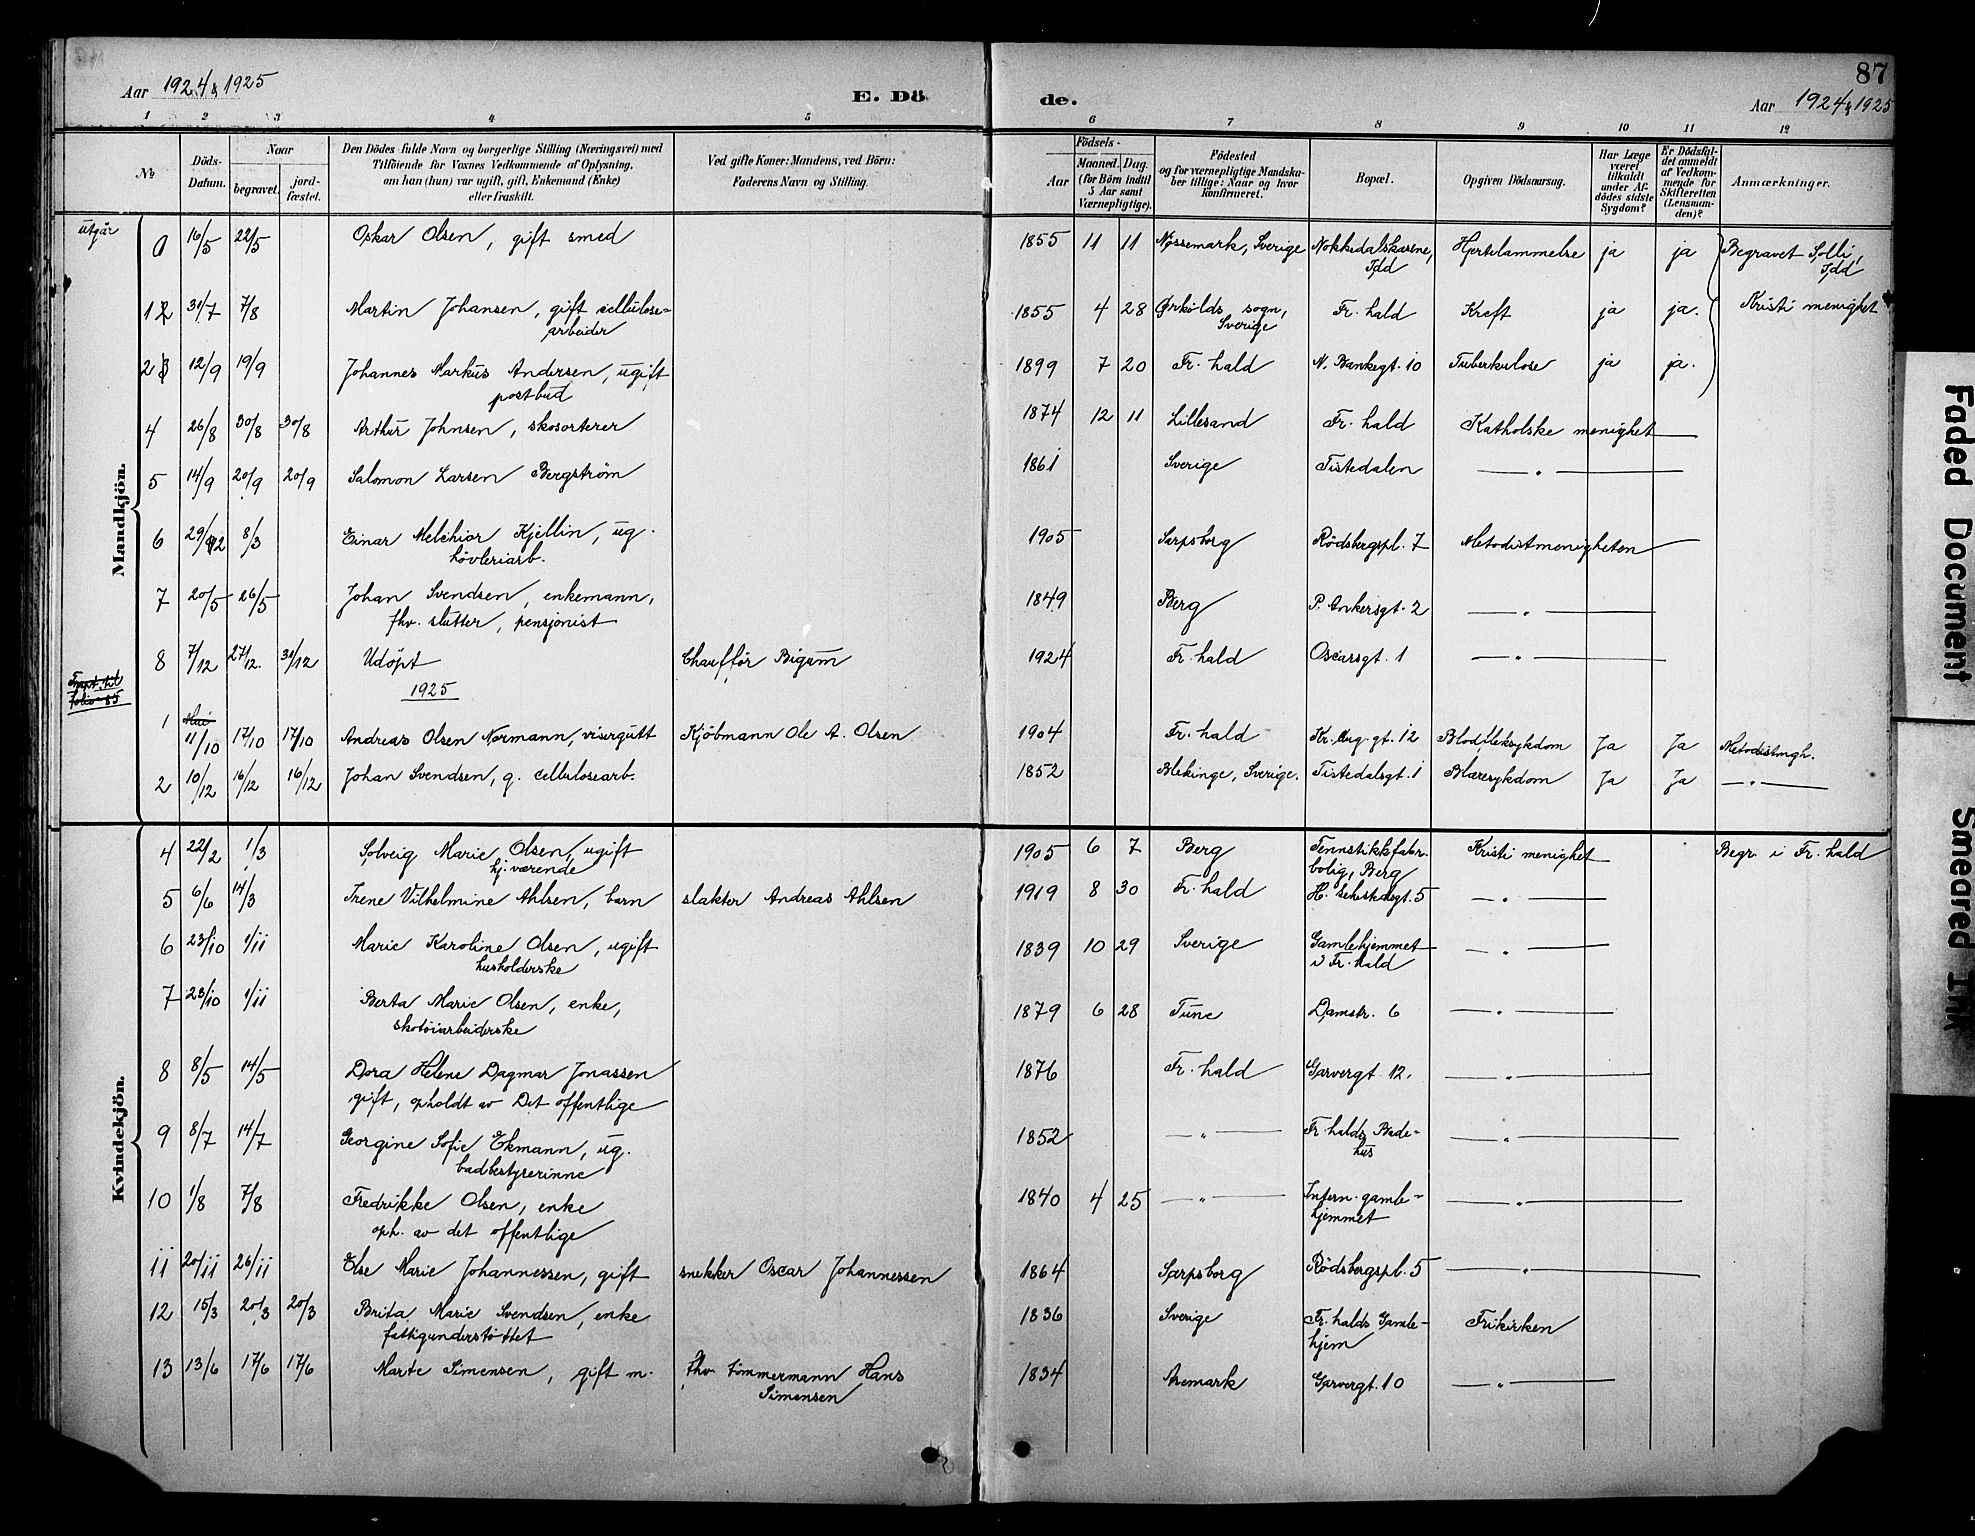 Aar 1924 & 1925
E. Dö
de.
87
Aar 1924 & 1925
1 2 3 4 5 6 7 8 9 10 11 12
№
Döds-Datum.
Naar
begravet.
jord-fæstet.
Den Dödes fulde Navn og borgerlige Stilling (Næringsvei) med
Tilföiende for Voxnes Vedkommende af Oplysning,
om han (hun) var ugift, gift, Enkemand (Enke)
eller fraskilt.
Ved gifte Koner: Mandens, ved Börn:
Faderens Navn og Stilling.
Födsels-
Aar
Maaned. Dag.
(for Börn indtil
5 Aar samt
Værnepligtige).
Födested
og for værnepligtige Mandska-
ber tillige: Naar og hvor
konfirmeret.
Bopæl.
Opgiven Dödsaarsag.
Har Læge
været
tilkaldt
under Af-
dödes sidste
Sygdom?
Er Dödsfal-
det anmeldt
af Vedkom-
mende for
Skifteretten
(Lensman-
den)?
Anmærkninger.
Mandkjön.
utgår
0 16/5 22/5 Oskar Olsen, gift smed 1855 11 11 Nøssemark, Sverige Nokkedalskasene, Idd Hjertelammelse ja ja Begravet Solli, Idd
1 31/7 7/8 Martin Johansen, gift cellulose-
arbeider 1855 4 28 sogn, Sverige Fr. hald Kreft ja ja. Kristi menighet
2 12/9 19/9 Johannes Markus Andersen, ugift
postbud 1899 7 20 Fr. hald N. Bankegt. 10 Tuberkulose ja ja.
4 26/8 30/8 30/8 Arthur Johnsen, skosorterer 1874 12 11 Lillesand Fr. hald Katholske menighet
5 14/9 20/9 20/9 Salomon Larsen Bergström 1861 Sverige Tistedalen — " —
6 29/12 8/3 Einar Melchior Kjellin, ug.
hövleriarb. 1905 Sarpsborg Rödsbergspl. 7 Metodistmenigheten
7 20/5 26/5 Johan Svendsen, enkemann,
fhv. slutter, pensjonist 1849 Berg P. Ankersgt. 2 — " —
8 7/12 27/12. 31/12 Udöpt Chafför Bigum 1924 Fr. hald Oscarsgt. 1 — " —
folio 85
1925
1 11/10 17/10 17/10 Andreas Olsen Normann, visergutt Kjöbmann Ole A. Olsen 1904 Fr. hald Kr. Aug. gt. 12 Ja Ja Metodistmgh.
2 10/12 16/12 16/12 Johan Svendsen, g. cellulosearb. 1852 Blekinge, Sverige. Tistedalsgt. 1 Blæresykdom Ja Ja — " —
Kvindekjön.
4 22/2 1/3 Solveig Marie Olsen, ugift
hj. værende 1905 6 7 Berg Fennstikkfabr.
bolig, Berg Kristi menighet Begr. i Fr. hald
5 6/6 14/3 Irene Vilhelmine Ahlsen, barn slakter Andreas Ahlsen 1919 8 30 Fr. hald — " —
6 23/10 1/11 Marie Karoline Olsen, ugift
husholderske 1839 10 29 Sverige Gamlehjemmet
i Fr. hald — " —
7 23/10 1/11 Berta Marie Olsen, enke,
skotöiarbeiderske 1879 6 28 Tune Damstr. 6 — " —
8 8/5 14/5 Dora Helene Dagmar Jonassen
gift, opholdt av Det offentlige 1876 Fr. hald Garvergt. 12. — " —
9 8/7 14/7 Georgine Sofie Ekmann, ug.
badbestyrerinne 1852 — " — Fr. halds Bade-
hus — " —
10 1/8 7/8 Fredrikke Olsen, enke
oph. av det offentlige 1840 4 25 — " — Intern. gamle-
hjemmet — " —
11 20/11 26/11 Else Marie Johannessen, gift snekker Oscar Johannessen 1864 Sarpsborg Rödsbergspl. 5 — " —
12 15/3 20/3 20/3 Brita Marie Svendsen, enke
fattigunderstöttet 1836 Sverige Fr. halds Gamle-
hjem Frikirken
13 13/6 17/6 17/6 Marte Simensen, gift m. fhv tömmermann Hans
Simensen 1834 Aremark Garvergt. 10 — " —
Faded Document
Smeared Ink